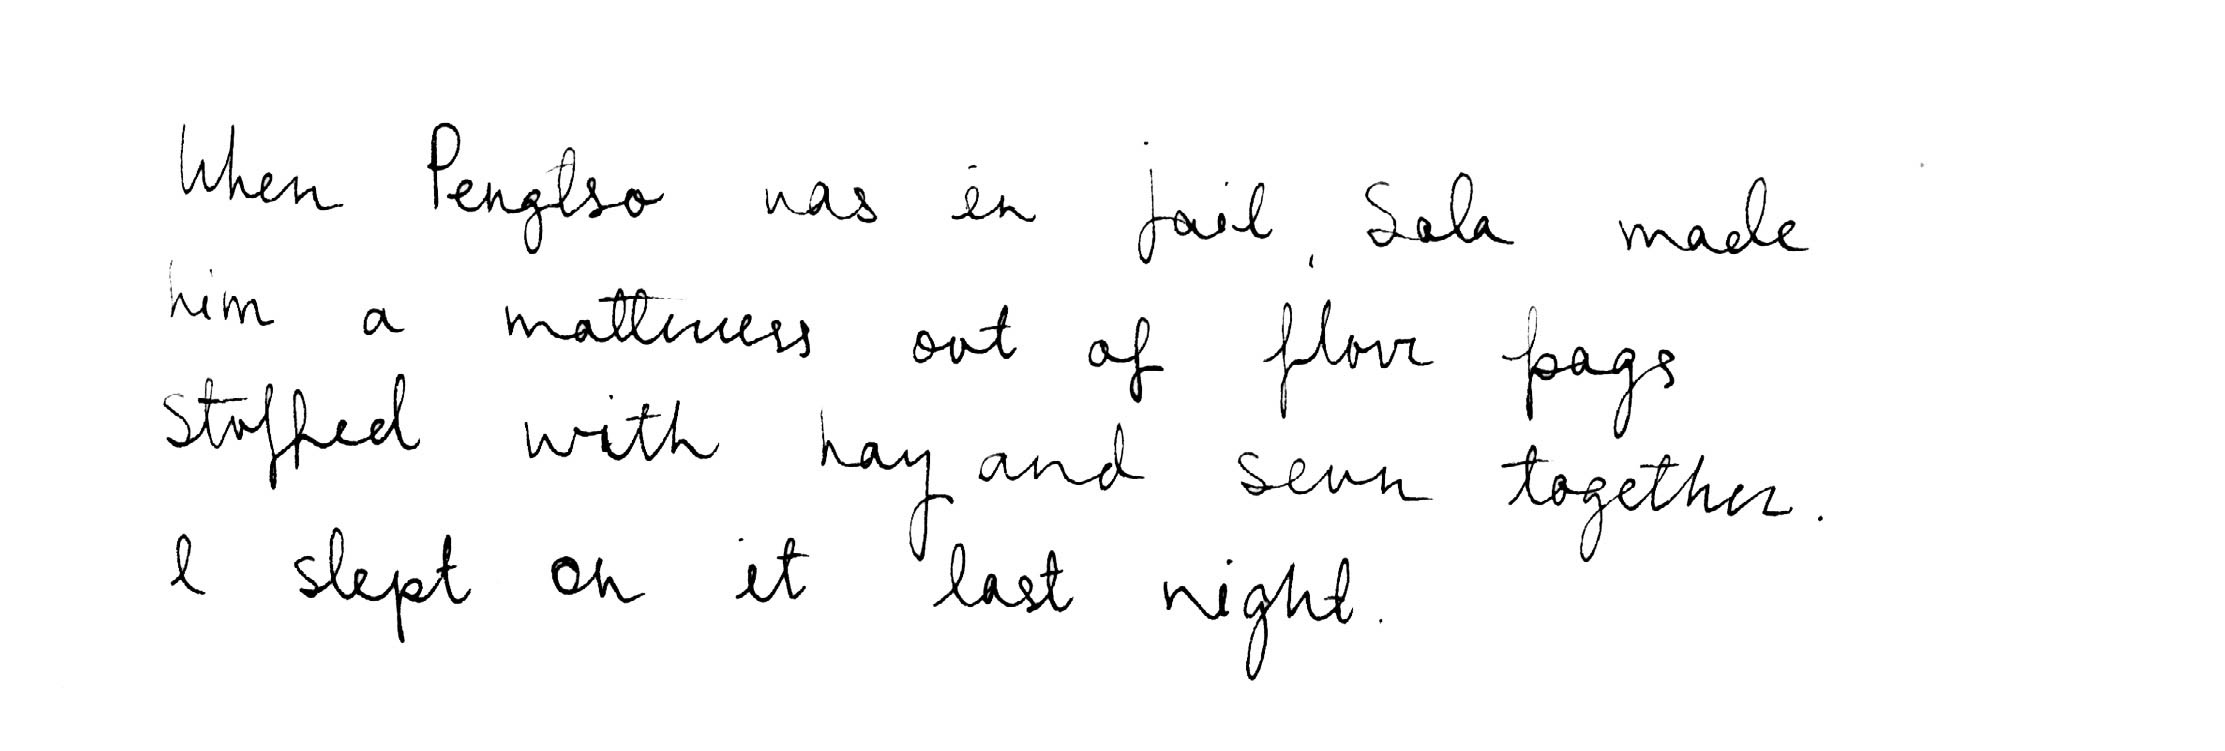 When Pengtso was in jail, Sala made
him a mattress out of flour bags
stuffed with hay and sewn together.
I slept on it last night.